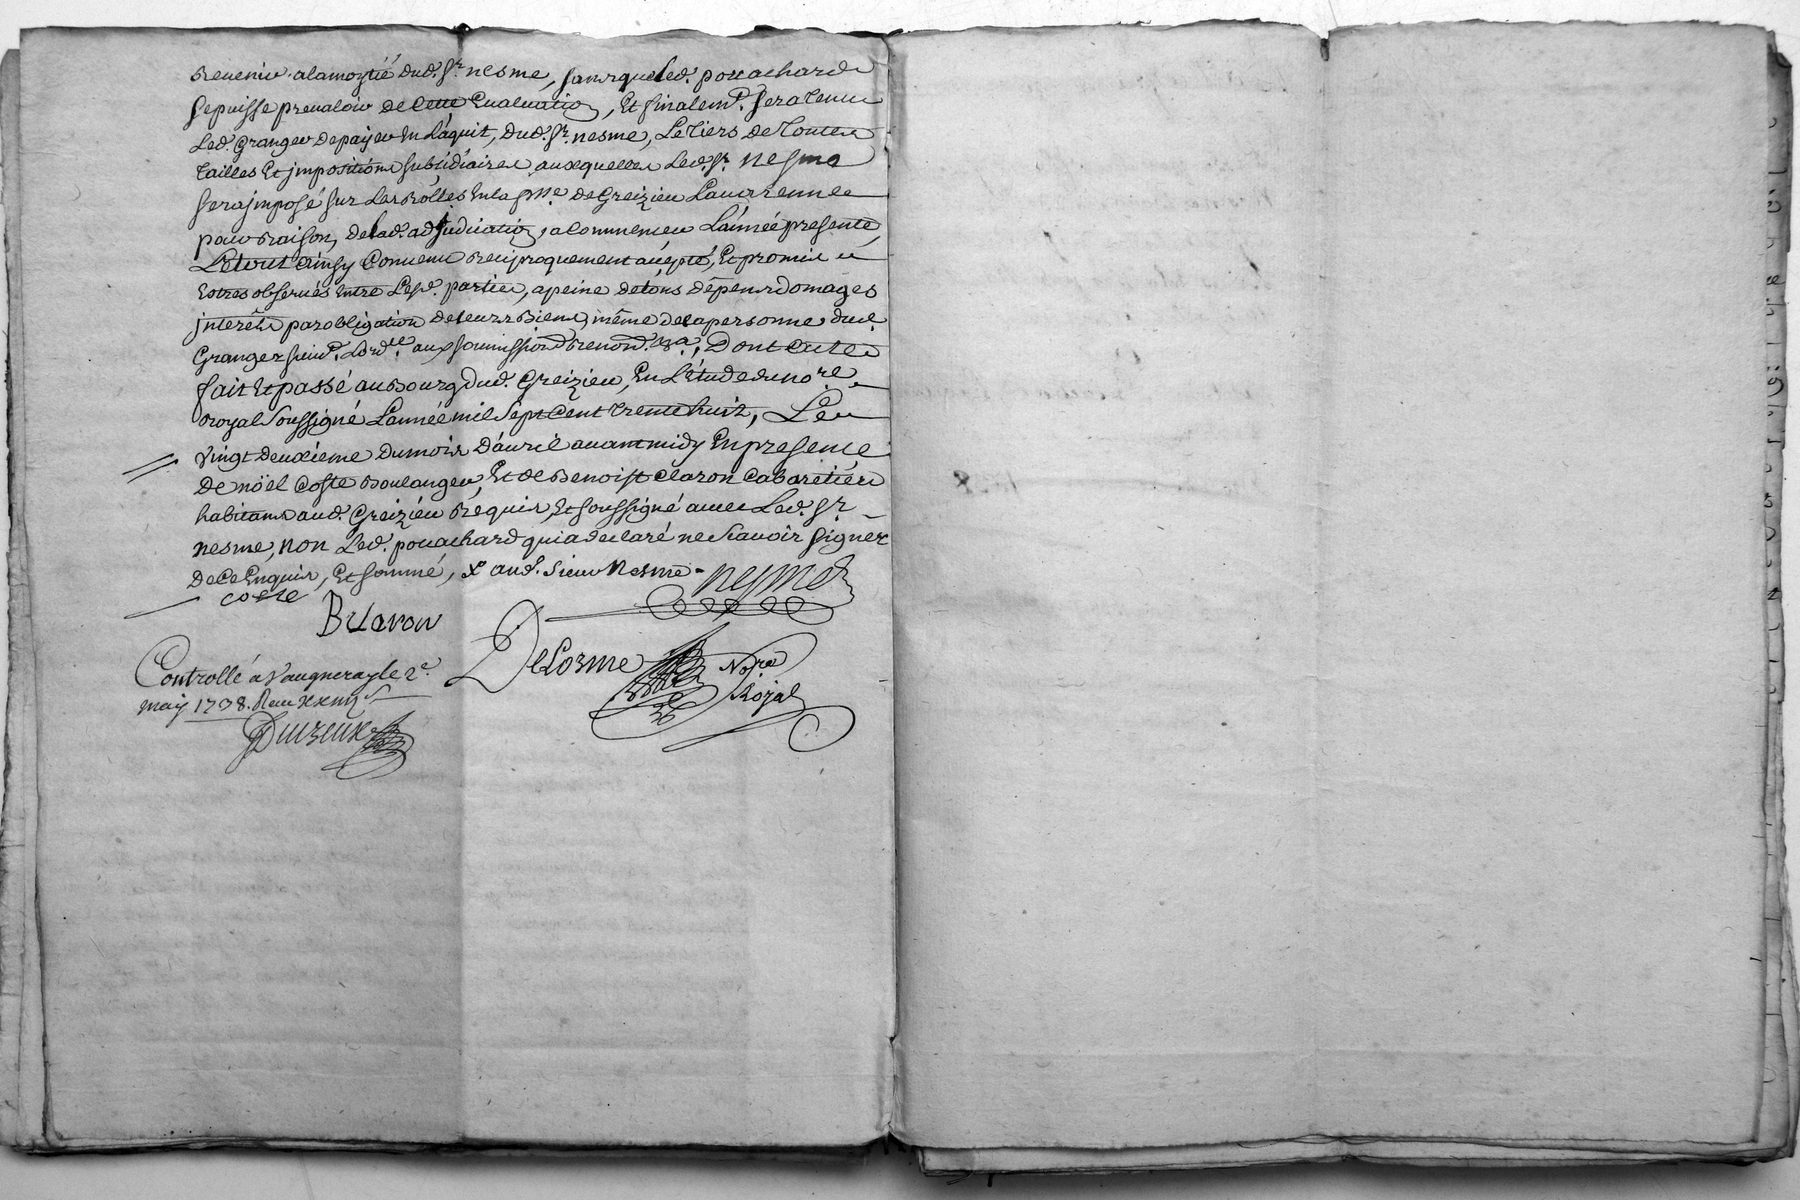 revenir a la moytié dud. Sr. nesme, sans que led. pouachard
se puisse prevaloir de cette Evaluation, Et finalemt. sera tenu
Led. Granger de payer En L'aquit, dud. Sr. nesme, Le tiers de toutes
tailles Et jmpositions subsidiaires auxquelles Led. Sr. nesme
sera jmposé sur Les Rolles En la psse. de Greizieu Lavarenne
pour Raison, de lad. adjudication, a Commencer L'année presente,
Le tout Ainsy Convenu Reciproquement acépté, Et promis
Estres observés Entre Lesd. parties, a peine de tous dépens domages
jnterêts par obligation de leurs Biens, même de sa personne dud.
Granger aux soumissions Renond. &a., Dont acte
fait Et passé au Bourg dud. Greizieu, En L'étude du nore.
royal soussigné L'année mil sept Cent trente huit, Le
vingt deuxieme du mois D'avril avant midy En presence
De nöel Coste Boulanger, Et de Benoist Claron Cabaretier
habitans aud. Greizieu Réquis, Et soussigné avec Led. Sr.
nesme, non Led. pouachard qui a declaré ne Scavoir signer
De Ce Enquis, Et sommé, x aud. Sieur Nesme - nesme
coste
B Claron
DeLorme Nore. Royal
Controllé á Vaugneray le 2e.
may 1738. Receu